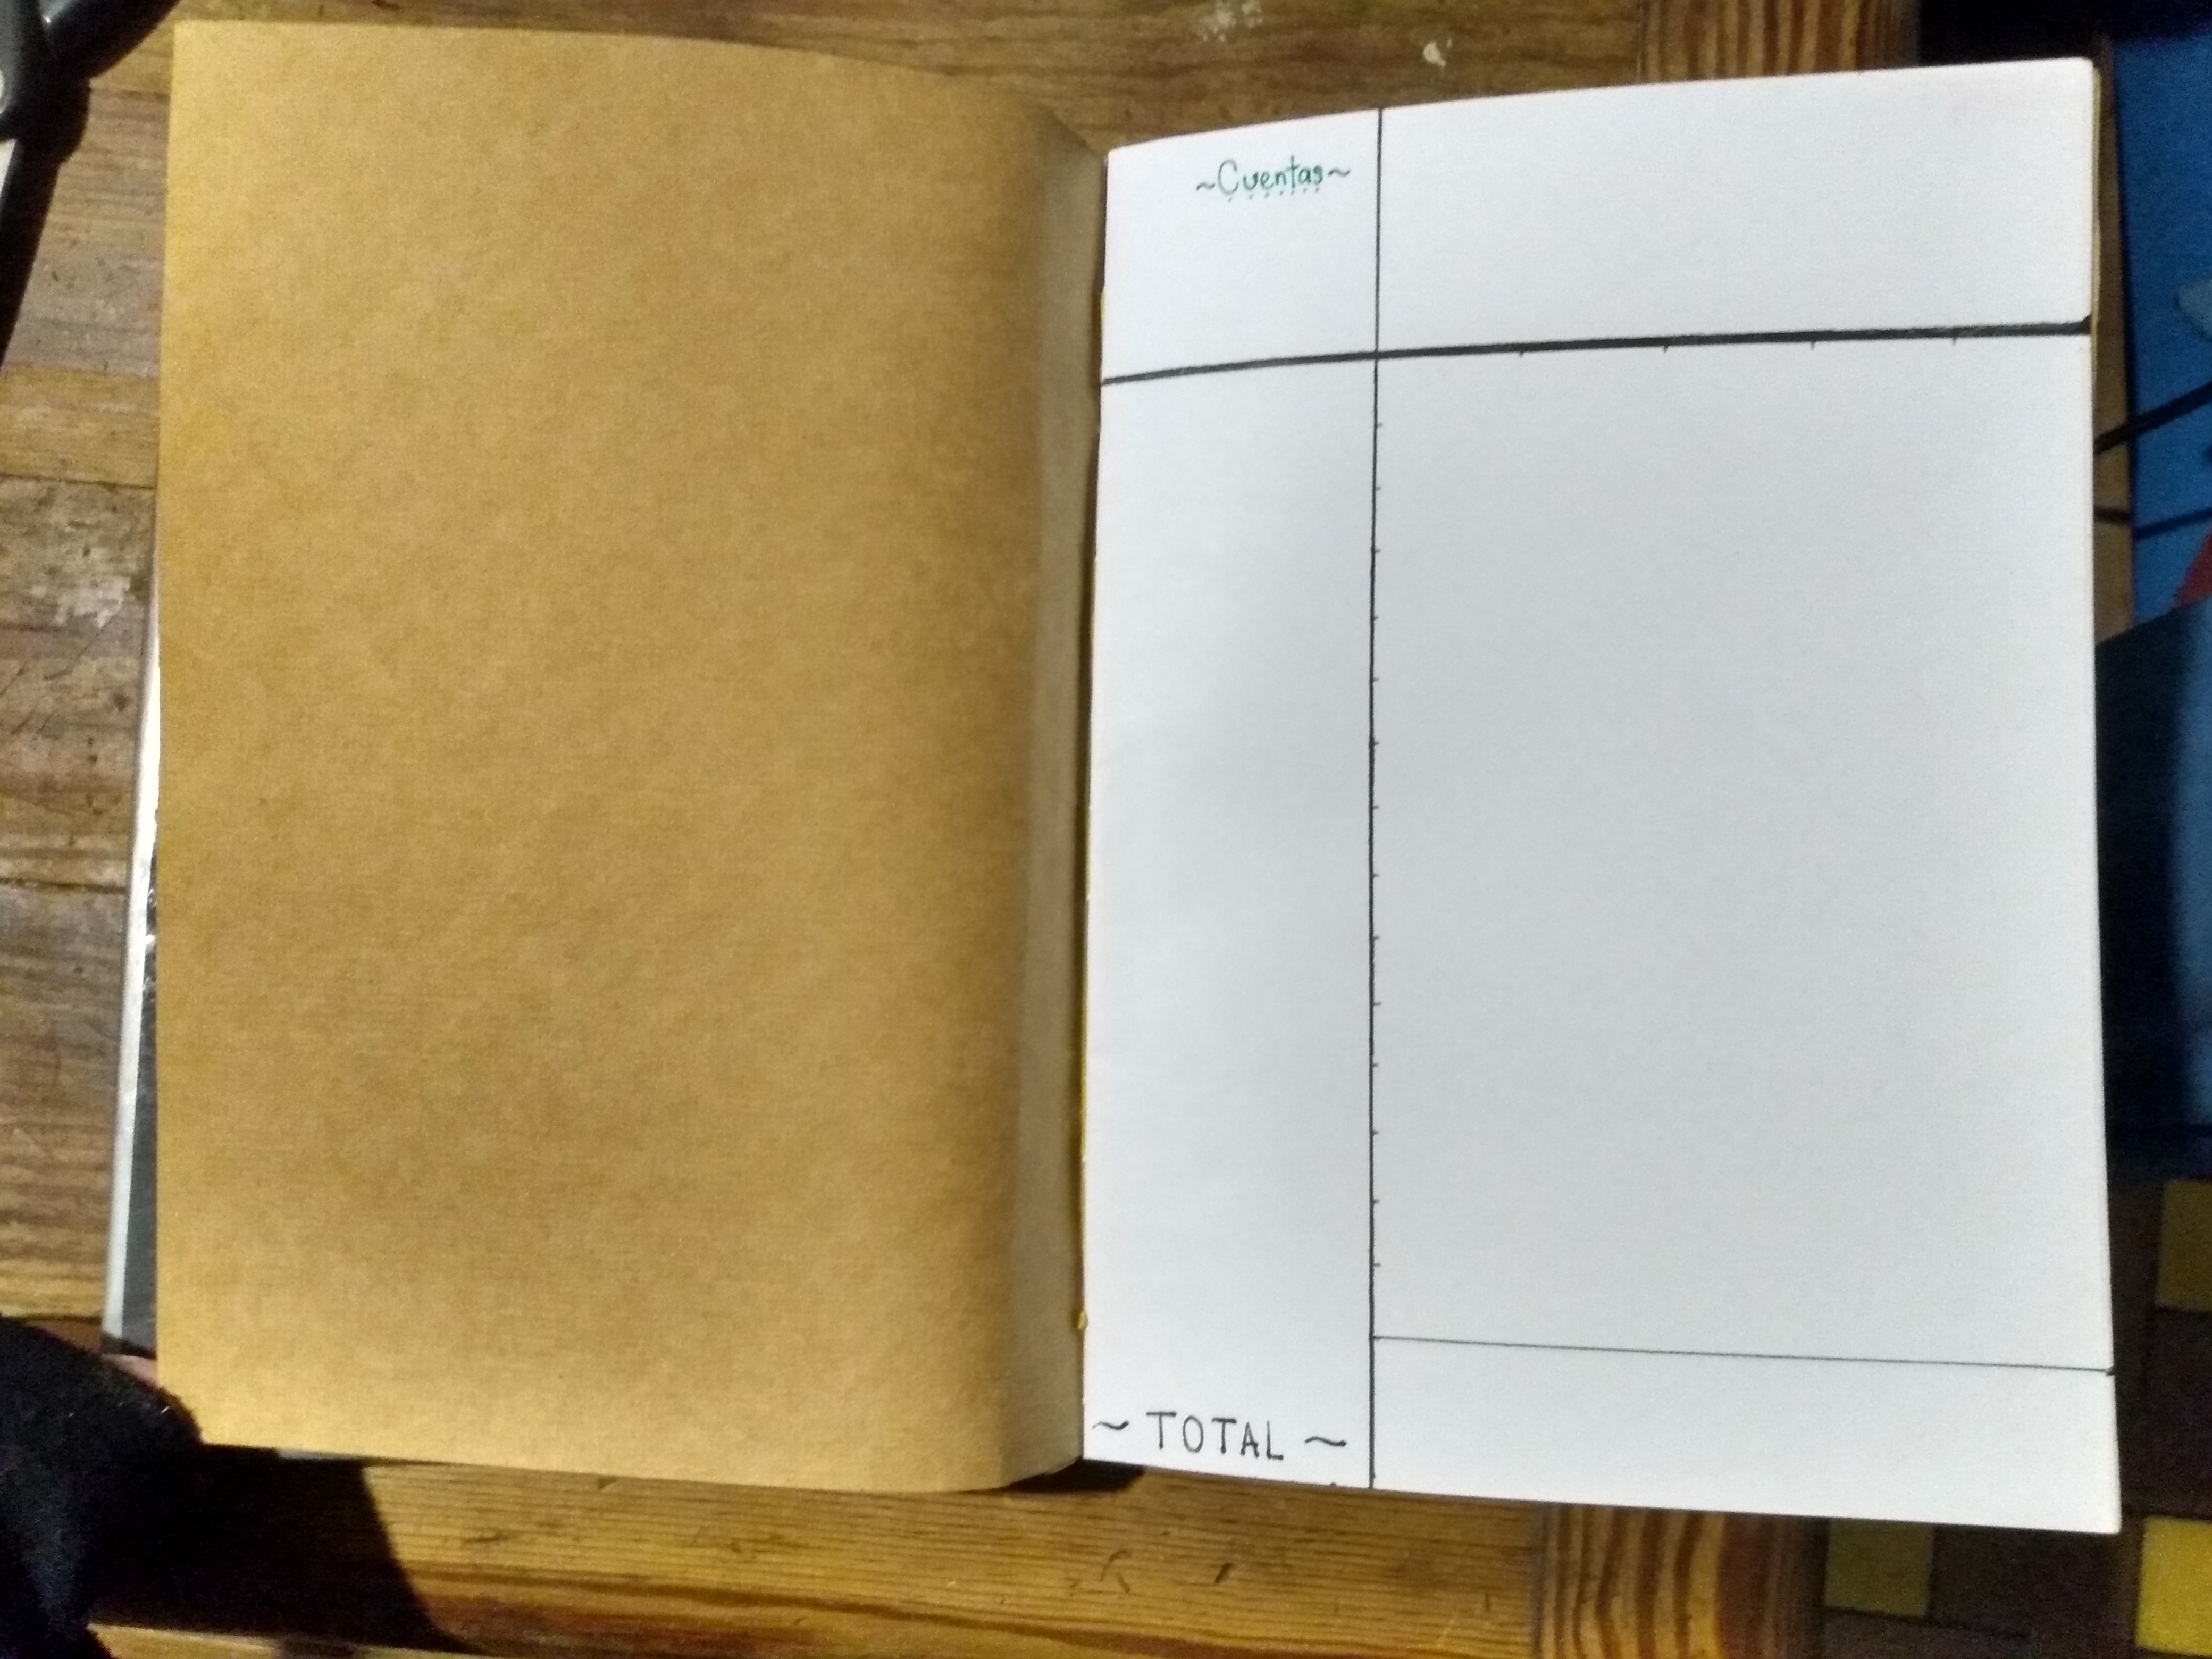 ~Cuentas~
~ TOTAL ~